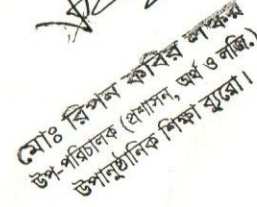 মোঃ রিপন কবির লস্কর
উপ-পরিচালক (প্রশাসন, অর্থ ও লজি.)
উপানুষ্ঠানিক শিক্ষা ব্যুরো।